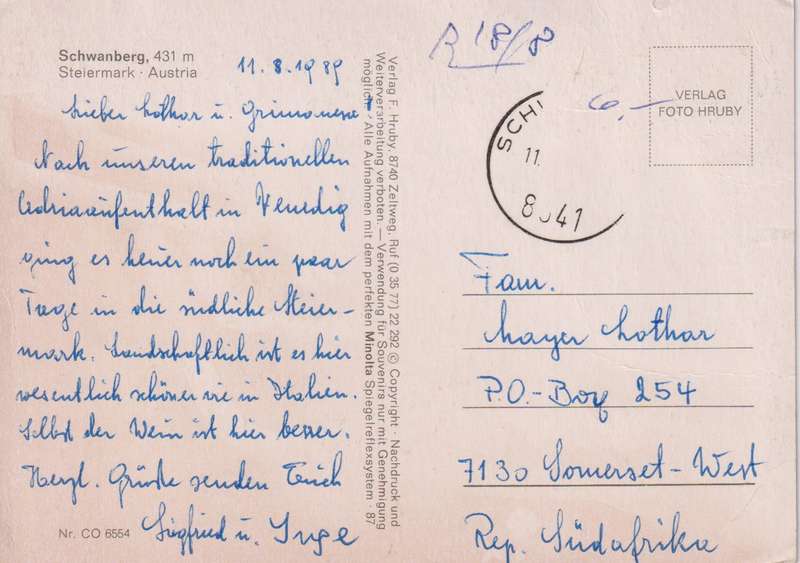 Schwanberg, 431 m
Steiermark · Austria
11. 8. 1989
Lieber Lothar u.
Nach unseren traditionellen
Adriaaufenthalt in Venedig
ging es heuer noch ein paar
Tage in die südliche Steier-
mark. Landschaftlich ist es hier
wesentlich schöner wie in Italien.
Selbst der Wein ist hier besser.
Herzl. Grüße senden Euch
Siegfried u. Inge
Nr. CO 6554
Verlag F. Hruby, 8740 Zeltweg, Ruf (0 35 77) 22 292 © Copyright · Nachdruck und
Weiterverarbeitung verboten. — Verwendung für Souvenirs nur mit Genehmigung
möglich · Alle Aufnahmen mit dem perfekten Minolta Spiegelreflexsystem · 87
R 18/8
SCH
11.
8541
6,—
VERLAG
FOTO HRUBY
Fam.
Mayer Lothar
P.O.-Box 254
7130 Somerset-West
Rep. Südafrika